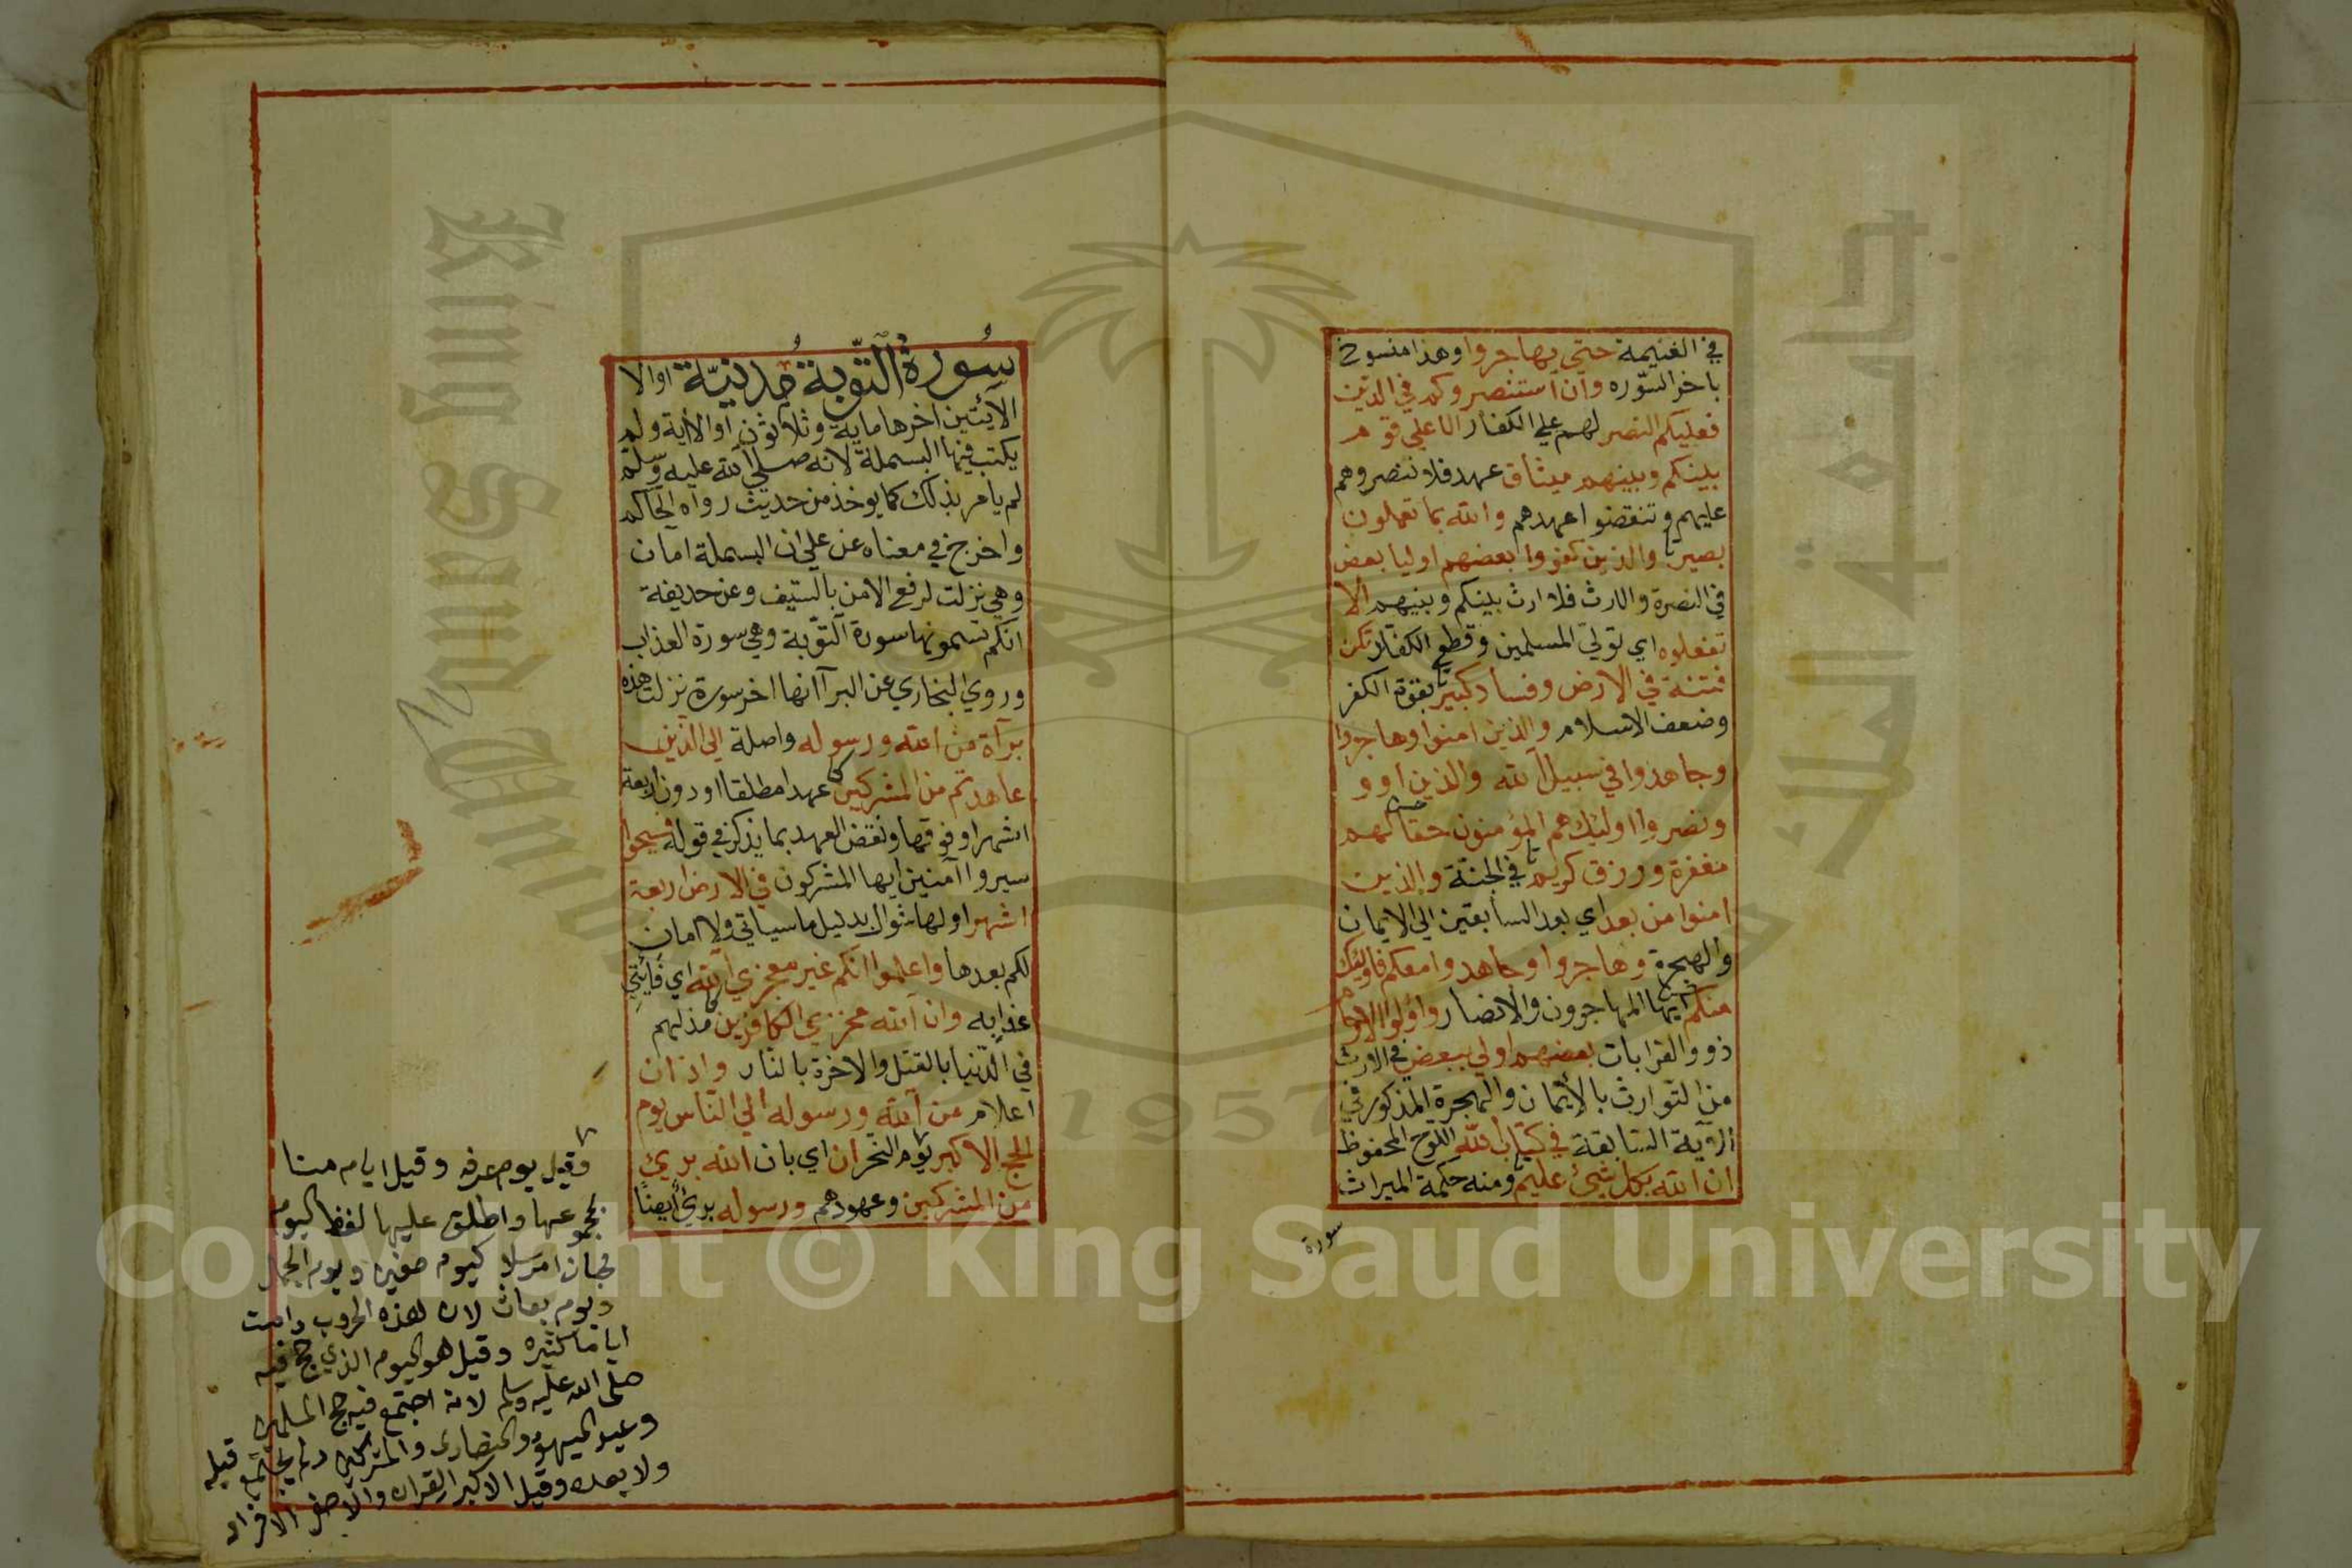 في الغنيمة حتي يهاجروا وهذا منسوخ
باخر السّوره وان استنصروكم في الدين
فعليكم النصر لهم علي الكفار الا علي قوم
بينكم وبينهم ميثاق عهد فلا تنصروهم
عليهم وتنقضوا عهدهم والله بما تعملون
بصير والذين كفروا بعضهم اوليا بعض
في النصرة والارث فلا ارث بينكم وبينهم الا
تفعلوه اي تولي المسلمين وقطع الكفار تكن
فتنة في الارض وفساد كبير بقوة الكفر
وضعف الاسلام والذين امنوا وهاجروا
وجاهدوا في سبيل الله والذين اوو
ونصروا اوليك هم المؤمنون حقا لهم
مغفرة ورزق كريم في الجنة والذين
امنوا من بعد اي بعد السابقين الي الايمان
والهجرة وهاجروا وجاهدوا معكم فاوليك
منكم ايها المهاجرون والانصار واولوا الارحام
ذوو القرابات بعضهم اولي ببعض في الارث
من التوارث بالأيمان والهجرة المذكور في
الاية السابقة في كتاب الله اللوح المحفوظ
ان الله بكل شيئ عليم ومنه حكمة الميراث
سورة
سورة التوبة مدنية اوالا
الايتين اخرها ماية وثلاثون اوالا اية ولم
يكتب فيها البسملة لانه صلي الله عليه وسلم
لم يامر بذلك كما يوخذ من حديث رواه الحاكم
واخرج في معناه عن علي ان البسملة امان
وهي نزلت لرفع الامن بالسيف وعن حديفة
انكم تسمونها سورة التوبة وهي سورة العذاب
وروي البخاري عن البرآ انها اخر سورة نزلت هذه
برآة من الله ورسوله واصلة الي الذين
عاهدتم من المشركين عهدا مطلقا او دون اربعة
اشهر او فوقها ونقض العهد بما يذكر في قوله فسيحوا
سيروا آمنين ايها المشركون في الارض اربعة
اشهر اولها شوال بدليل ما سياتي ولا امان
لكم بعدها واعلموا انكم غير معجزي الله اي فايتي
عذابه وان الله مخزي الكافرين مذلهم
في الدنيا بالقتل والاخرة بالنار واذان
اعلام من الله ورسوله الي الناس يوم
الحج الاكبر يوم النحر ان اي بان الله بريئ
من المشركين وعهودهم ورسوله بريئ أيضًا
وقيل يوم عرفه وقيل ايام منا
بجموعها واطلق عليها لفظ اليوم
كيوم صفين ويوم الجمل
ويوم بعاث لان هذه الحروب دامت
اياما كثيره وقيل هو اليوم الذي حج فيه
صلى الله عليه وسلم لانه اجتمع فيه حج المسلمين
وعيد اليهود والنصارى والمشركين ولم يجتمع قبله
ولا بعده وقيل الاكبر القران والاصغر الافراد
King Saud University
جامعة الملك سعود
1957
Copyright © King Saud University